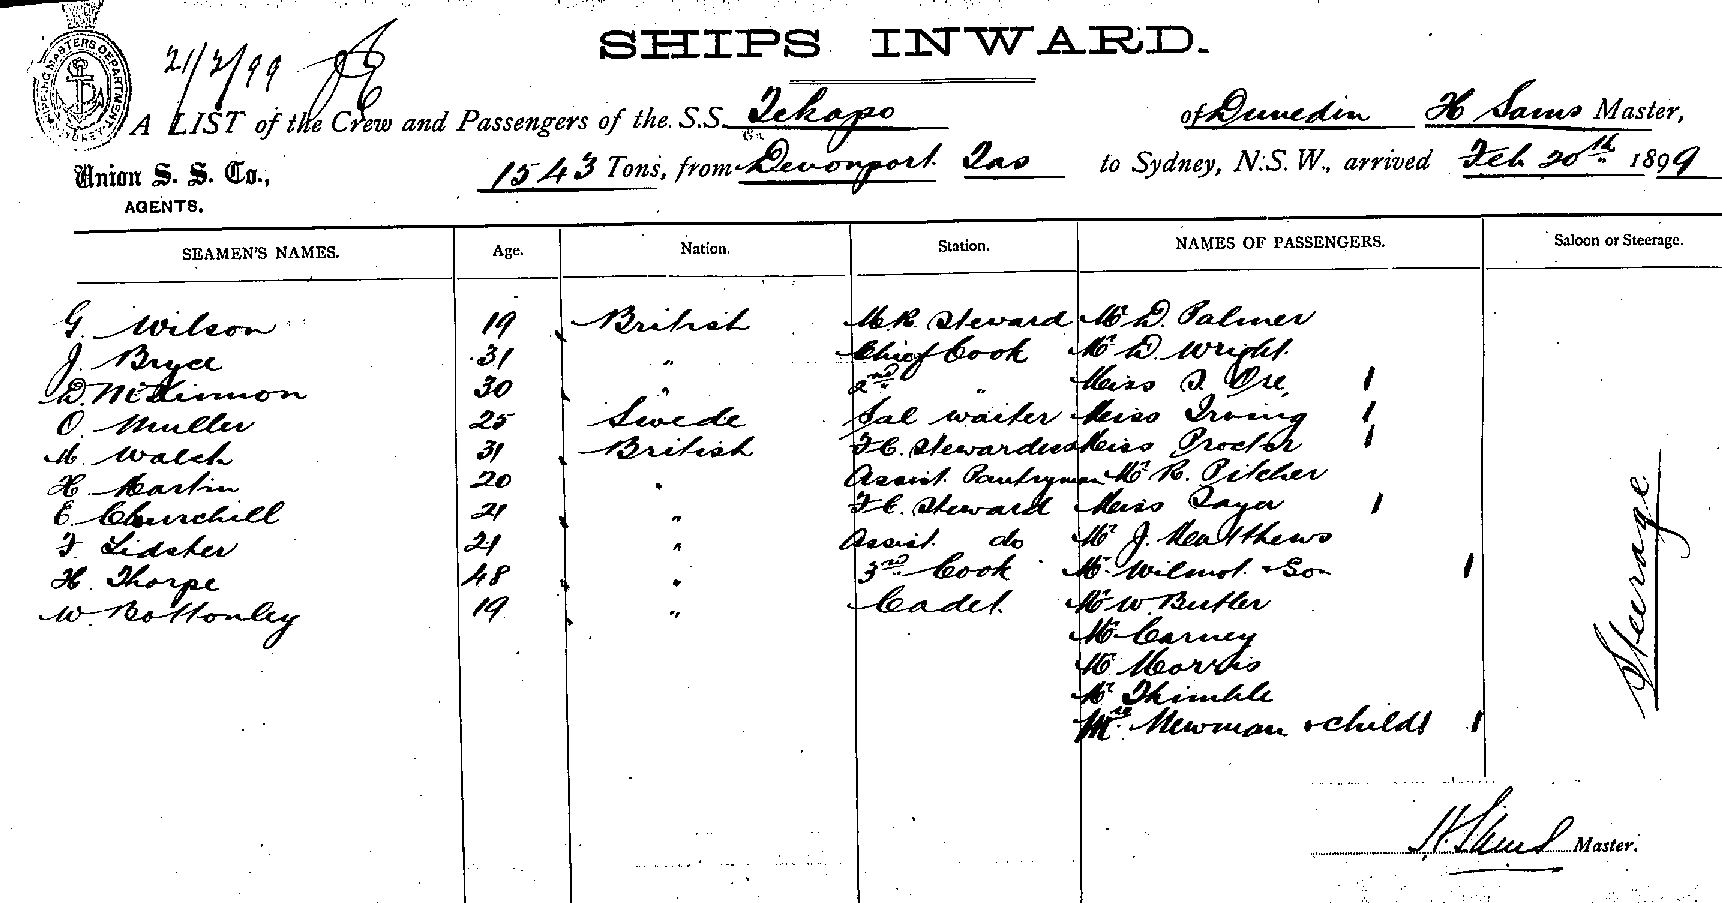 SHIPS INWARD.
21/2/99
A LIST of the Crew and Passengers of the S.S. Tekapo of Dunedin H Sams Master,
Union S. S. Co., 1543 Tons, from Devonport Tas to Sydney, N.S.W., arrived Feb 20th 1899
AGENTS.
SEAMEN'S NAMES. Age. Nation. Station. NAMES OF PASSENGERS. Saloon or Steerage.
G. Wilson 19 British M.R. Steward Mr D. Palmer
J. Bryce 31 " Chief Cook Mr D. Wright
D. McKinnon 30 " 2nd " Miss I. Ore 1
O. Muller 25 Swede Sal waiter Miss Irving 1
M. Walsh 31 British F.C. Stewardess Miss Procter 1
H. Martin 20 " Assist. Pantryman Mr R. Pitcher
E. Churchill 21 " F.C. Steward Miss Sayer 1
F. Lidster 21 " Assist. do Mr J. Matthews
H. Thorpe 48 " 3rd Cook Mr Wilmot & Son 1
W. Bottonley 19 " Cadet Mr W. Butler
Mr Carney
Mr Morris
Mr Thimble
Mrs Newman & child 1 1
Steerage
H. Sams Master.